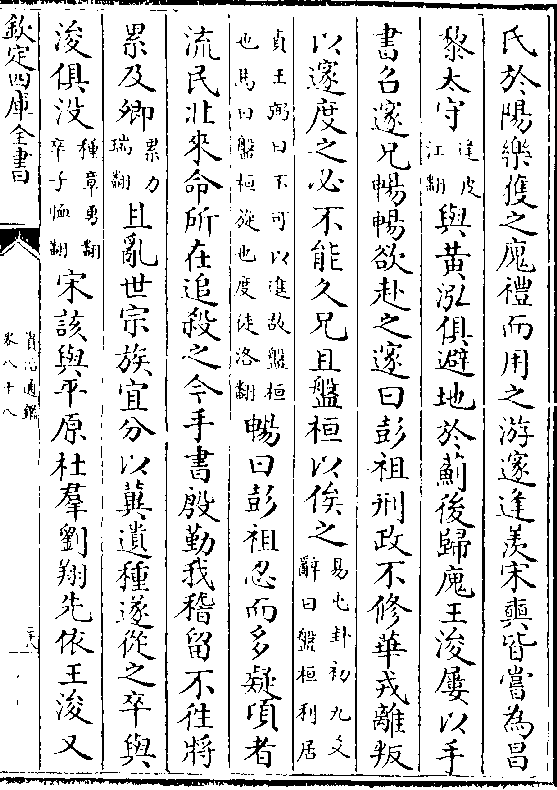 氏於陽樂雋之廆禮而用之游邃逄羨宋奭皆嘗為昌
黎太守逄皮江翻與黃泓俱避地於薊後歸廆王浚屢以手
書召邃兄暢暢欲赴之邃曰彭祖刑政不修華戎離叛
以邃度之必不能久兄且盤桓以俟之易屯卦初九爻辭曰盤桓利居
貞王弼曰不可以進故盤桓也馬曰盤桓旋也度徒洛翻暢曰彭祖忍而多疑頃者
流民北來命所在追殺之今手書殷勤我稽留不徃將
累及卿累力瑞翻且亂世宗族宜分以冀遺種遂從之卒與
浚俱没種章勇翻卒子恤翻宋該與平原杜羣劉翔先依王浚又
欽定四庫全書
資治通鑑
卷八十八